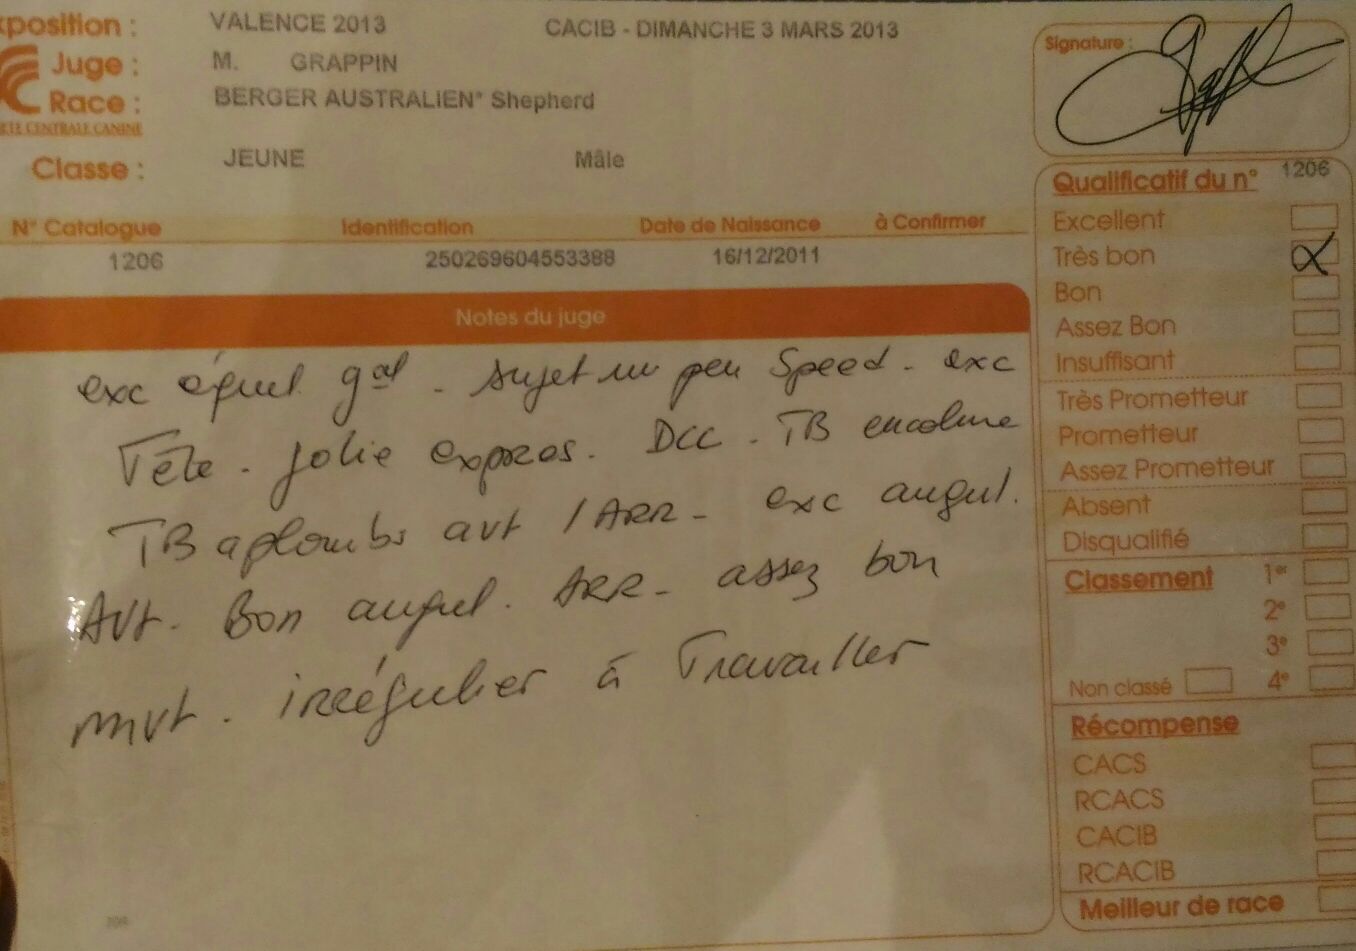 xposition : VALENCE 2013 CACIB - DIMANCHE 3 MARS 2013
Juge : M. GRAPPIN
Race : BERGER AUSTRALIEN* Shepherd
CENTRALE CANINE
Classe : JEUNE Mâle
N° Catalogue Identification Date de Naissance à Confirmer
1206 250269604553388 16/12/2011
Notes du juge
exc équil. gal - sujet un peu Speed - exc
Tête - jolie expres. DCC - TB encolure
TB aplombs avt / ARR - exc angul.
Avt - Bon angul. ARR - assez bon
mvt - irrégulier à Travailler
Signature :
Qualificatif du n° 1206
Excellent
Très bon
Bon
Assez Bon
Insuffisant
Très Prometteur
Prometteur
Assez Prometteur
Absent
Disqualifié
Classement 1er
2e
3e
Non classé 4e
Récompense
CACS
RCACS
CACIB
RCACIB
Meilleur de race